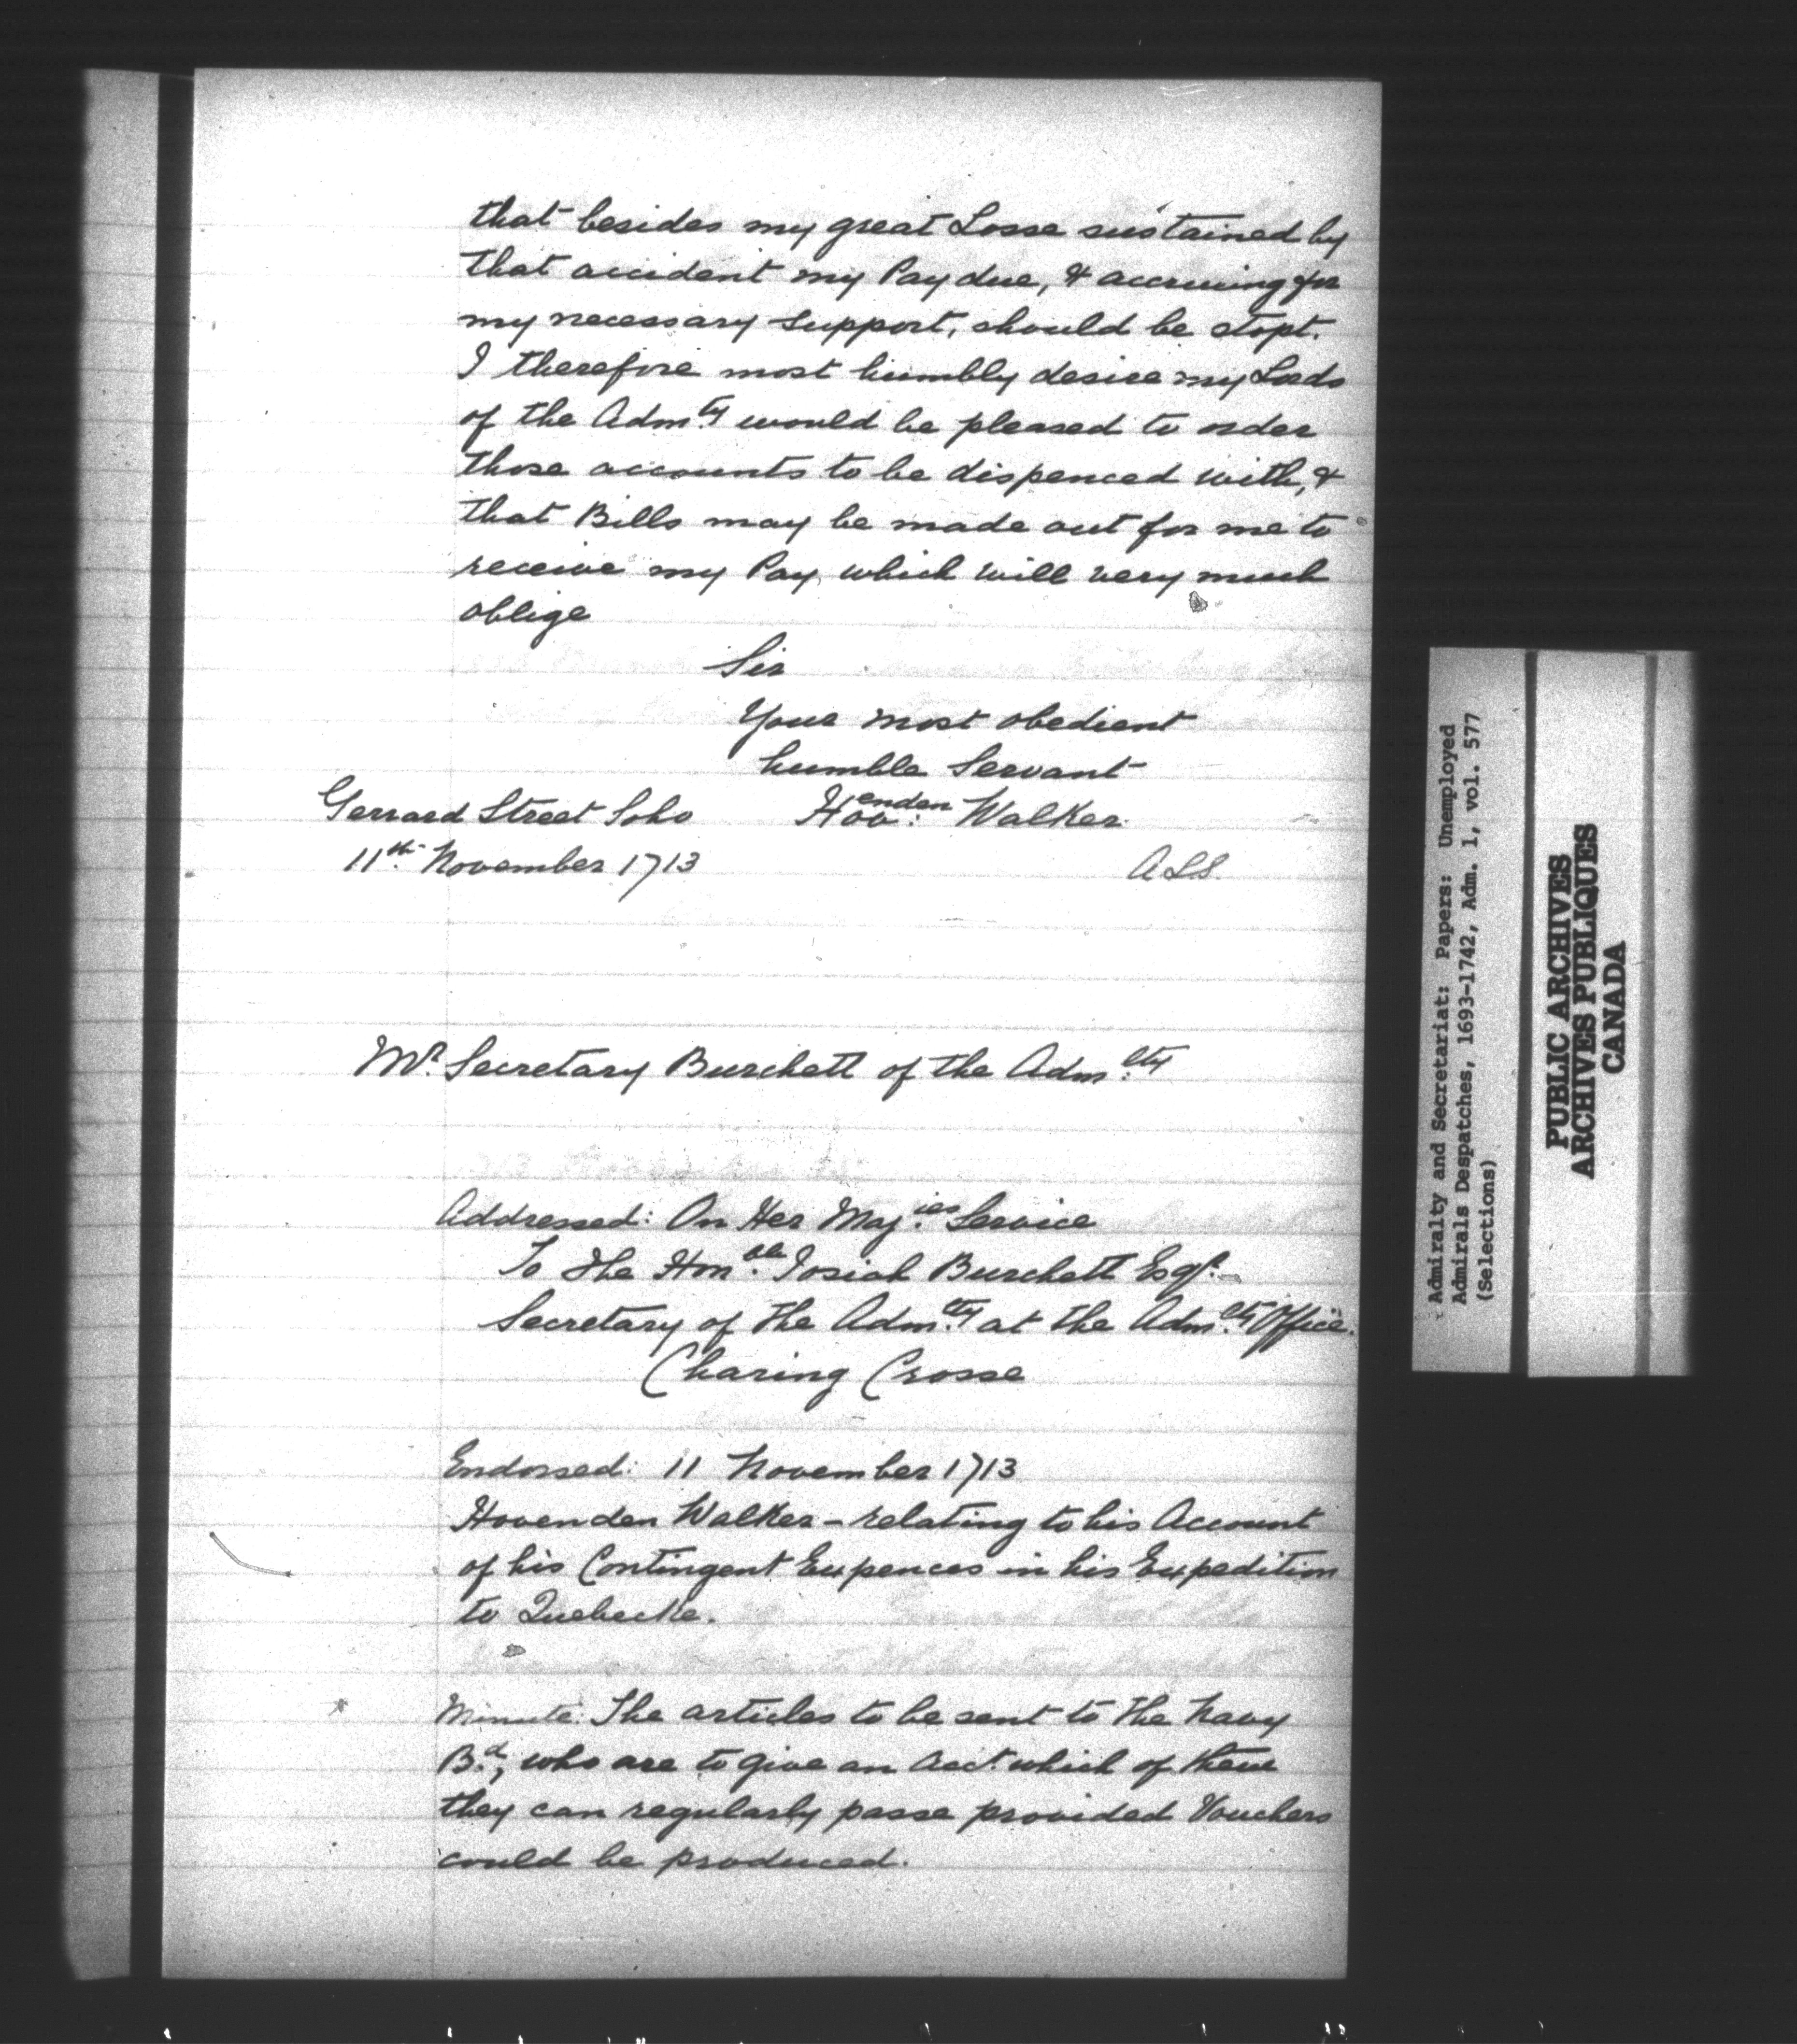 that besides my great Losse sustained by
that accident my Pay due, & accruing for
my necessary support, should be stopt.
I therefore most humbly desire my Lords
of the Adm.ty would be pleased to order
those accounts to be dispenced with, &
that Bills may be made out for me to
receive my Pay which will very much
oblige
Sir
Your most obedient
humble Servant
Gerrard Street Soho Hov:enden Walker
11th November 1713 A.L.S.
Mr. Secretary Burchett of the Adm.lty
Addressed: On Her Maj.ies Service
To The Hon.ble Josiah Burchett Esqr.
Secretary of the Adm.lty at the Adm.lty Office.
Charing Crosse
Endorsed: 11 November 1713
Hovenden Walker - relating to his Account
of his Contingent Expences in his Expedition
to Quebecke.
Minute: The articles to be sent to the Navy
B.d, who are to give an Acct. which of them
they can regularly passe provided Vouchers
could be produced.
Admiralty and Secretariat: Papers: Unemployed
Admirals Despatches, 1693-1742, Adm. 1, vol. 577
(Selections)
PUBLIC ARCHIVES
ARCHIVES PUBLIQUES
CANADA